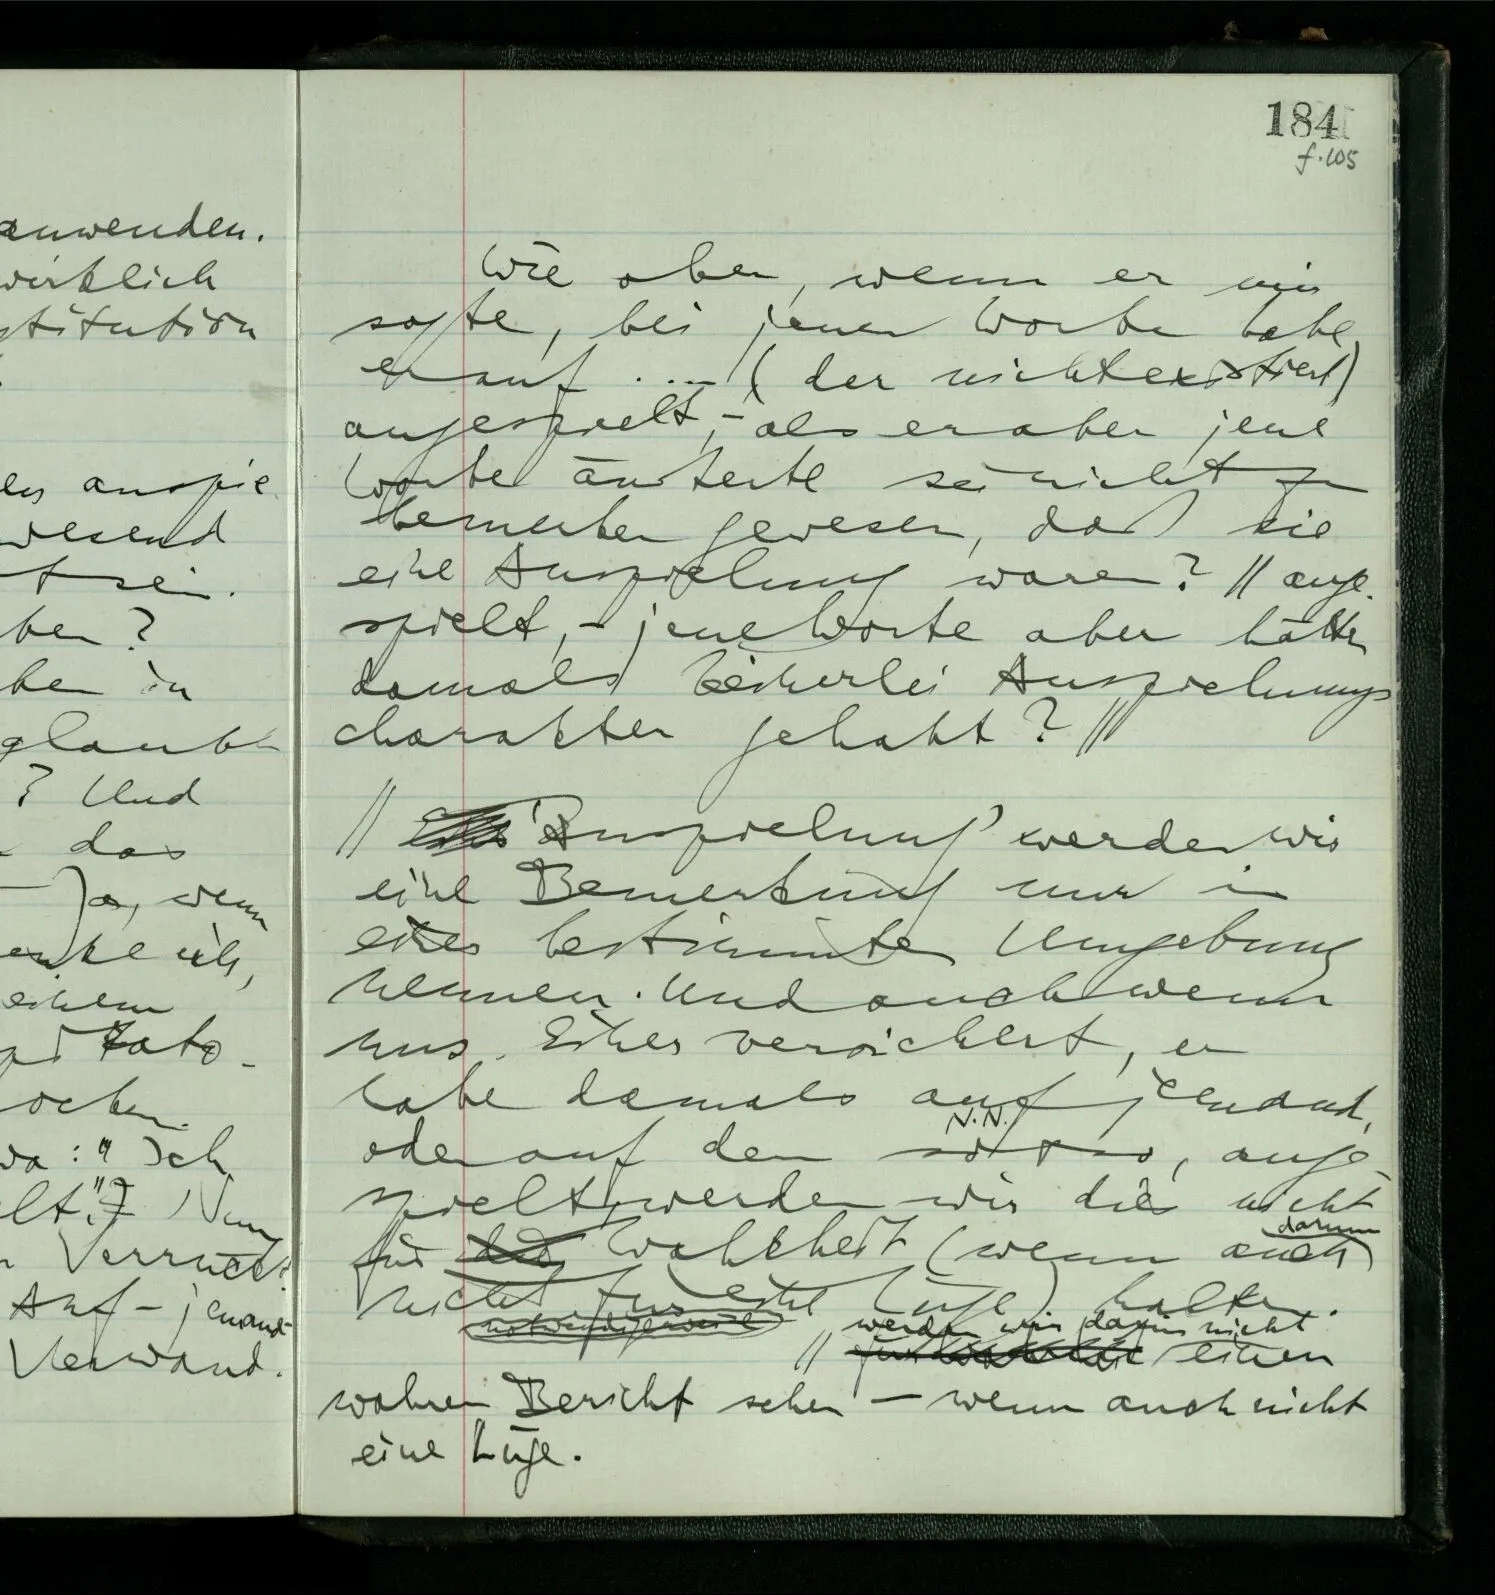 anwenden.
wirklich
stitution
en anspie
wesend
t sein.
ben?
ben in
glaub
? Und
das
– Ja, wenn
enke ich,
einem
Foto-
ochen.
wa: "Ich
elt"? Nun
Verrückt
Auf – jemand
Verwand.
184
f.105
Wie aber, wenn er mir
sagte, bei jenen Worten habe
er auf .... (der nicht existiert)
angespielt, – als er aber jene
Worte äußerte sei nicht zu
bemerken gewesen, daß sie
eine Anspielung waren? // ange-
spielt, – jene Worte aber hätten
damals keinerlei Anspielungs
charakter gehabt? //
// 'Anspielung' werden wir
eine Bemerkung nur in
einer bestimmten Umgebung
nennen. Und auch wenn
uns Einer versichert, er
habe damals auf jemand,
N.N.
oder auf den, ange-
spielt, werden wir dies nicht
darum
für Wahrheit (wenn auch
nicht für eine Lüge) halten.
notwendigerweise
werden wir darin nicht
// einen
wahren Bericht sehen – wenn auch nicht
eine Lüge.